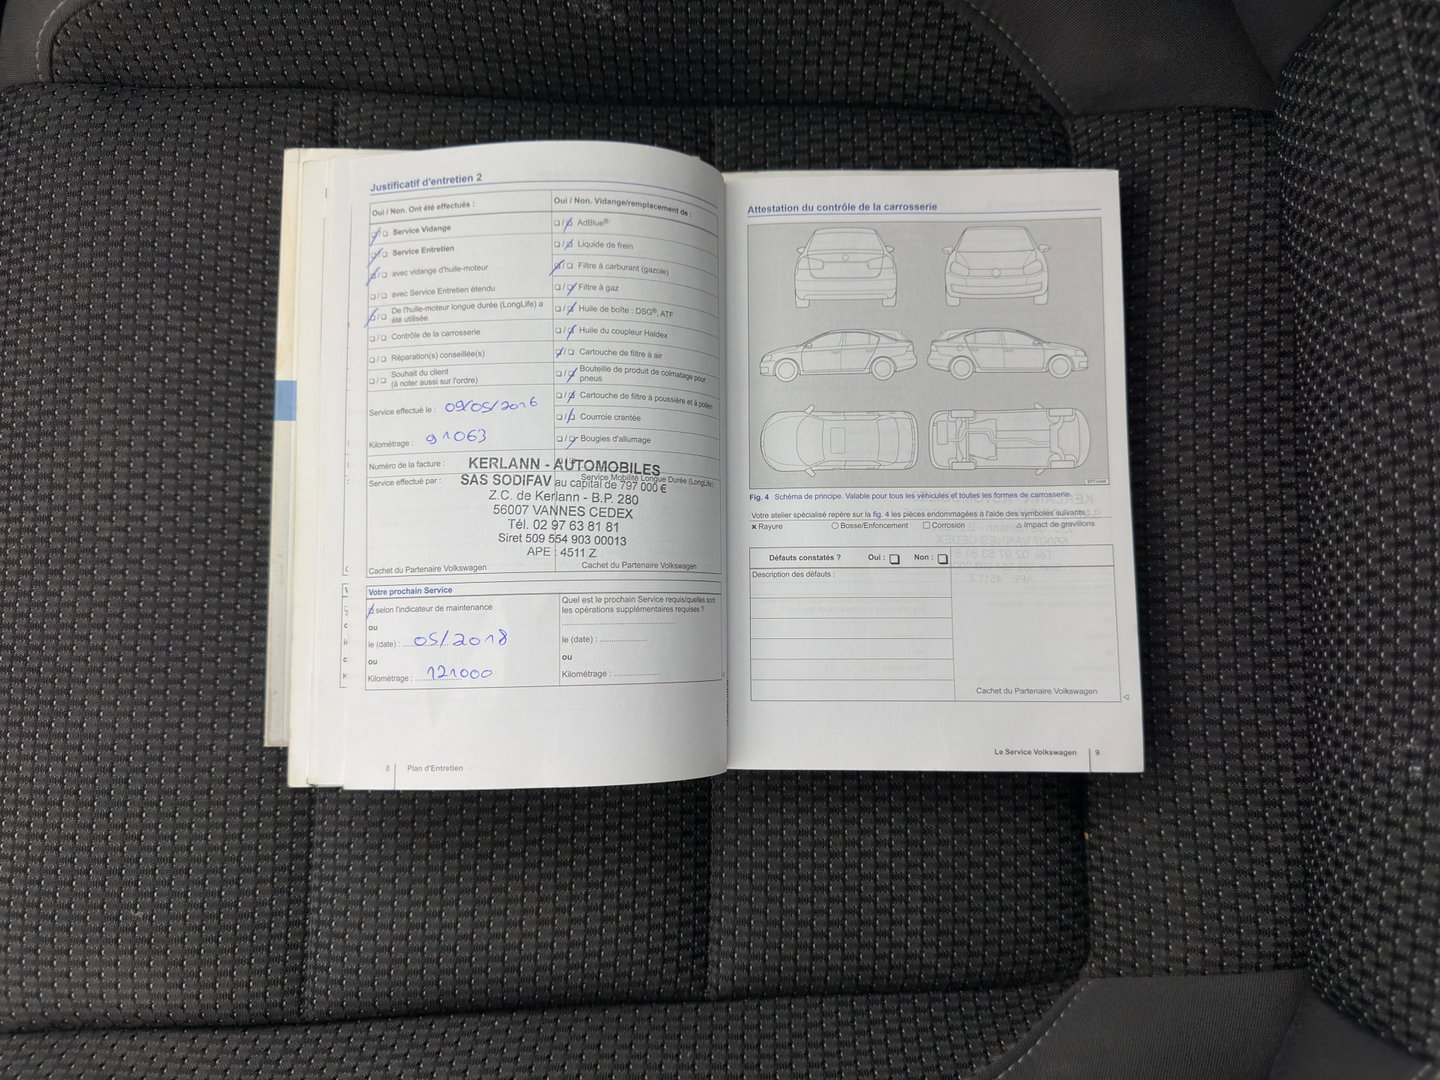 Justificatif d'entretien 2
Oui / Non. Ont été effectués :
Service Vidange
Service Entretien
avec vidange d'huile-moteur
avec Service Entretien étendu
De l'huile-moteur longue durée (LongLife) a
été utilisée
Contrôle de la carrosserie
Réparation(s) conseillée(s)
Souhait du client
(à noter aussi sur l'ordre)
Service effectué le : 09/05/2016
Kilométrage : 91063
Oui / Non. Vidange/remplacement de :
AdBlue®
Liquide de frein
Filtre à carburant (gazole)
Filtre à gaz
Huile de boîte : DSG®, ATF
Huile du coupleur Haldex
Cartouche de filtre à air
Bouteille de produit de colmatage pour
pneus
Cartouche de filtre à poussière et à pollen
Courroie crantée
Bougies d'allumage
Numéro de la facture :
Service effectué par :
Service Mobilité Longue Durée (LongLife)
KERLANN - AUTOMOBILES
SAS SODIFAV au capital de 797 000 €
Z.C. de Kerlann - B.P. 280
56007 VANNES CEDEX
Tél. 02 97 63 81 81
Siret 509 554 903 00013
APE : 4511 Z
Cachet du Partenaire Volkswagen
Cachet du Partenaire Volkswagen
Votre prochain Service
selon l'indicateur de maintenance
ou
le (date) : 05/2018
ou
Kilométrage : 121000
Quel est le prochain Service requis/quelles sont
les opérations supplémentaires requises ?
le (date) :
ou
Kilométrage :
8 Plan d'Entretien
Attestation du contrôle de la carrosserie
Fig. 4 Schéma de principe. Valable pour tous les véhicules et toutes les formes de carrosserie.
Votre atelier spécialisé repère sur la fig. 4 les pièces endommagées à l'aide des symboles suivants
× Rayure ○ Bosse/Enfoncement □ Corrosion △ Impact de gravillons
Défauts constatés ? Oui : ❏ Non : ❏
Description des défauts :
Cachet du Partenaire Volkswagen
Le Service Volkswagen 9